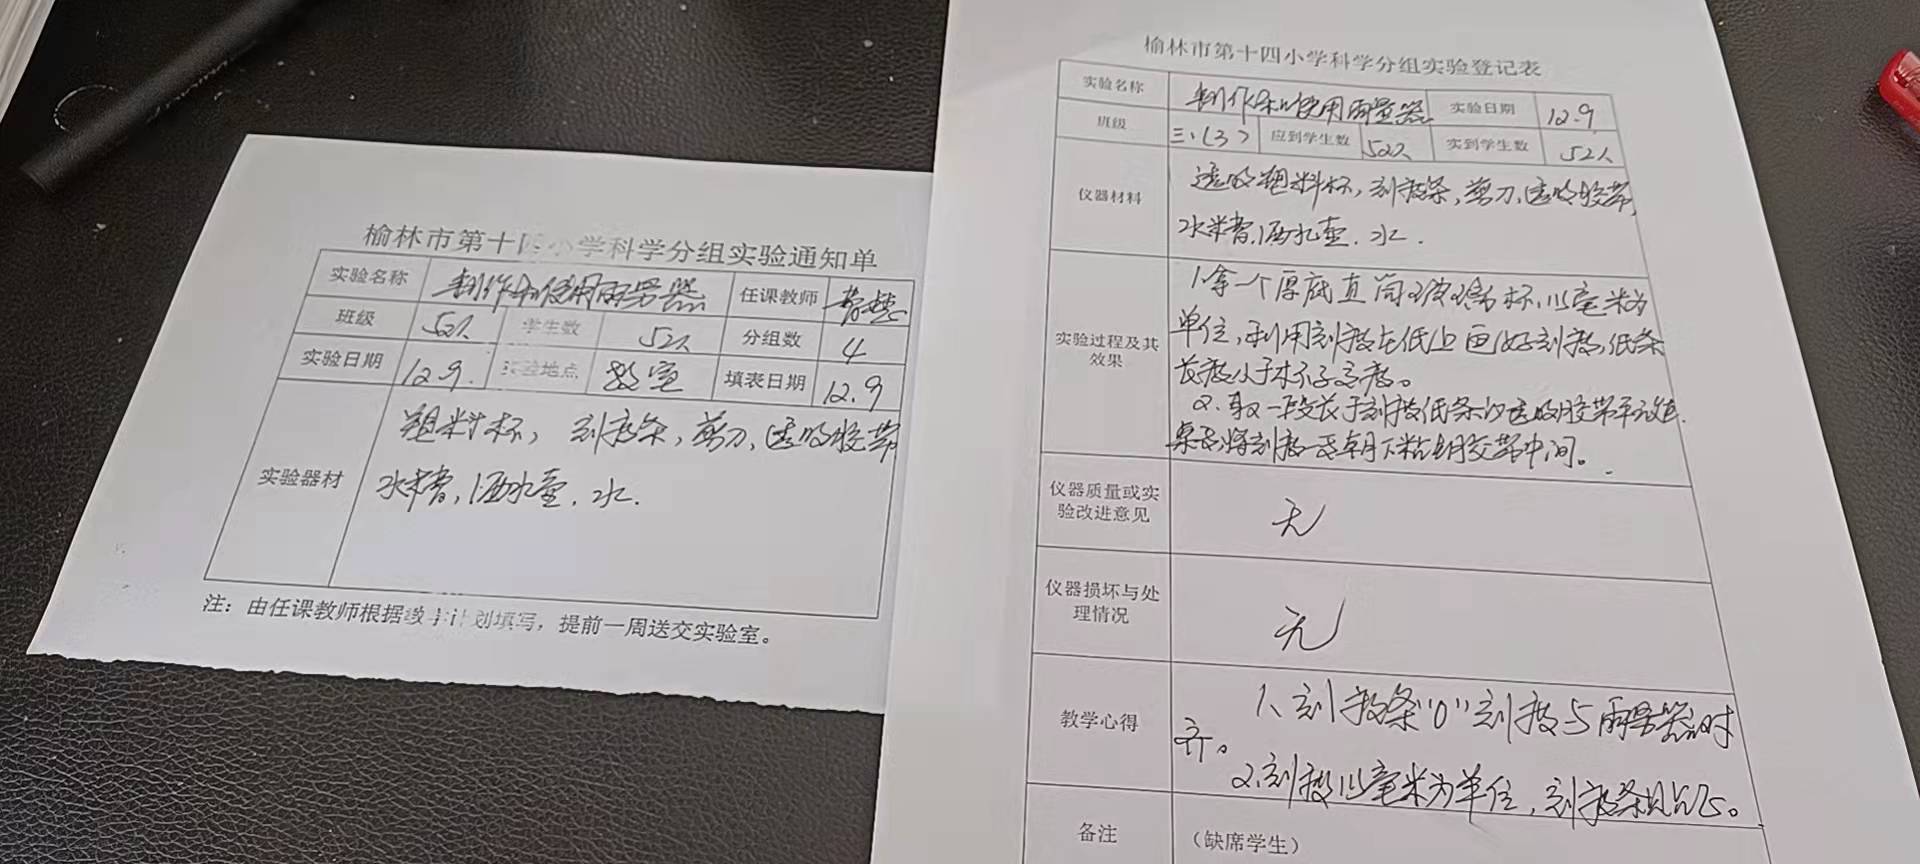 榆林市第十四小学科学分组实验通知单
实验名称 制作和使用雨量器 任课教师
班级 52人 学生数 52人 分组数 4
实验日期 12.9. 实验地点 教室 填表日期 12.9
实验器材 塑料杯，刻度条，剪刀，透明胶带
水，洒水壶，水.
注：由任课教师根据教学计划填写，提前一周送交实验室。
榆林市第十四小学科学分组实验登记表
实验名称 制作和使用雨量器 实验日期 12.9.
班级 三、(3) 应到学生数 52人 实到学生数 52人
仪器材料 透明塑料杯，刻度条，剪刀，透明胶带，
水，洒水壶，水.
实验过程及其效果
1.拿一个厚底直筒玻璃杯，以毫米为
单位，利用刻度在纸上画好刻度，纸条
长度小于杯子高度。
2.取一段长于刻度纸条的透明胶带平放在
桌面，将刻度一面朝下粘胶带中间。
仪器质量或实验改进意见 无
仪器损坏与处理情况 无
教学心得 1、刻度条"0"刻度与雨量器对
齐。
2.刻度以毫米为单位，刻度条
备注 （缺席学生）